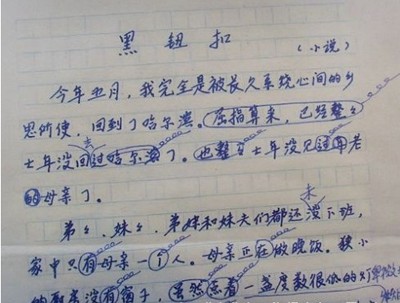 黑钮扣
（小说）
今年五月，我完全是被长久系绕心间的乡
思所使，回到了哈尔滨。屈指算来，已经整々
七年没回过哈尔滨了。也整々七年没见过年老
的母亲了。
弟々、妹々、弟妹和妹夫们都还没下班，
家中只有母亲一个人。母亲正在做晚饭。狭小
的厨房没有窗子，虽然亮着一盏度数很低的灯